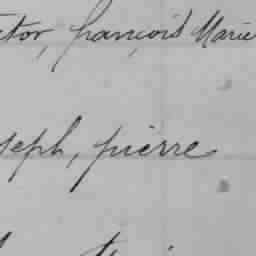 ctor, françois Marie
seph, pierre